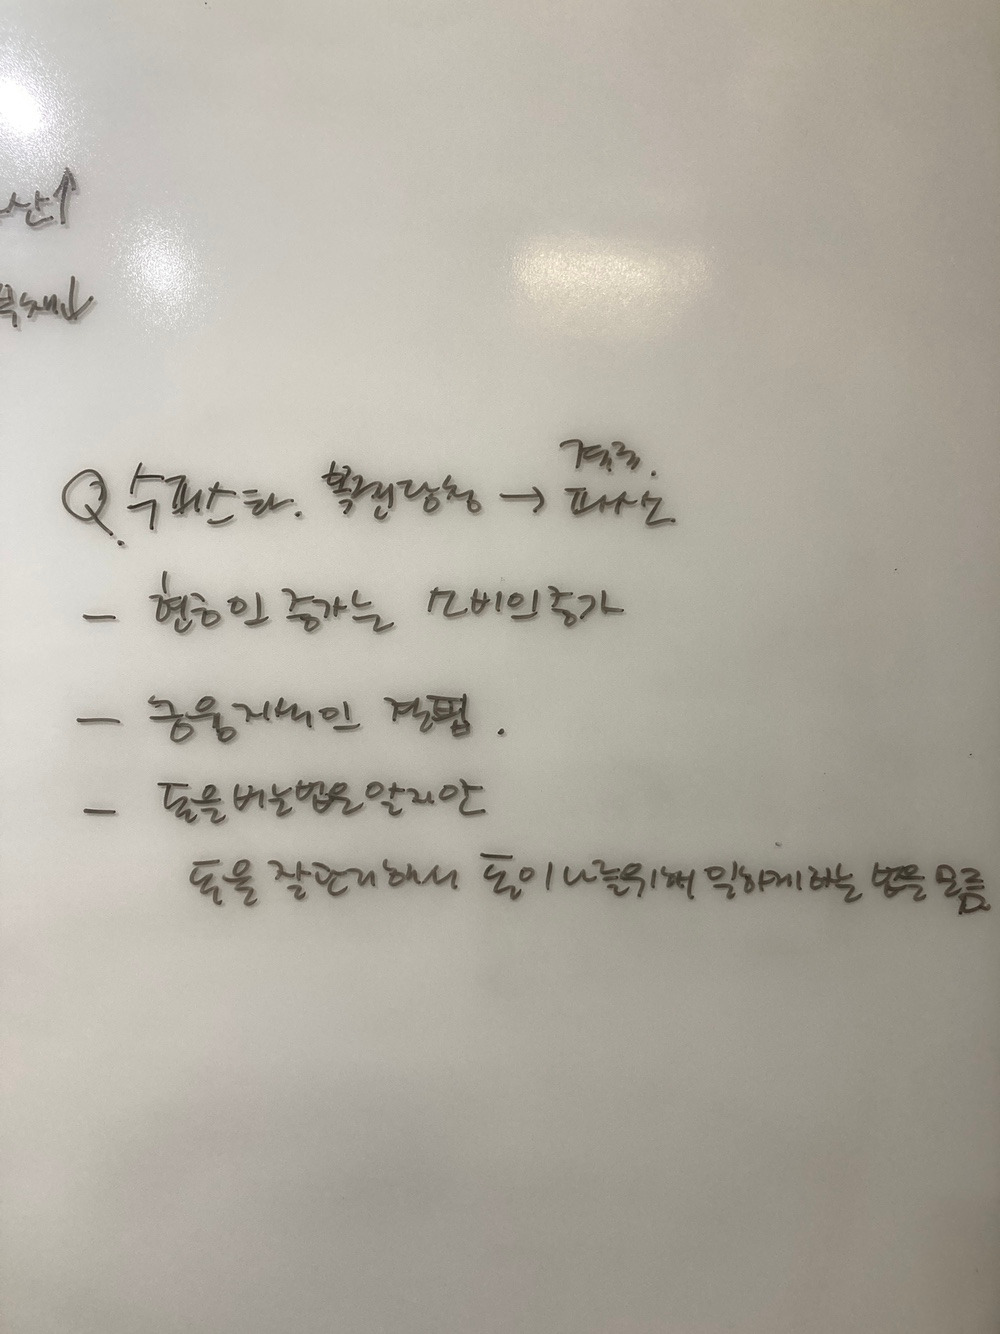 산↑
부채↓
결국.
Q. 수퍼스타. 복권당첨 → 파산.
- 현금의 증가는 소비의증가
- 금융지식의 결핍.
- 돈을버는법은알지만
돈을 잘관리해서 돈이나를위해 일하게하는 법을 모름